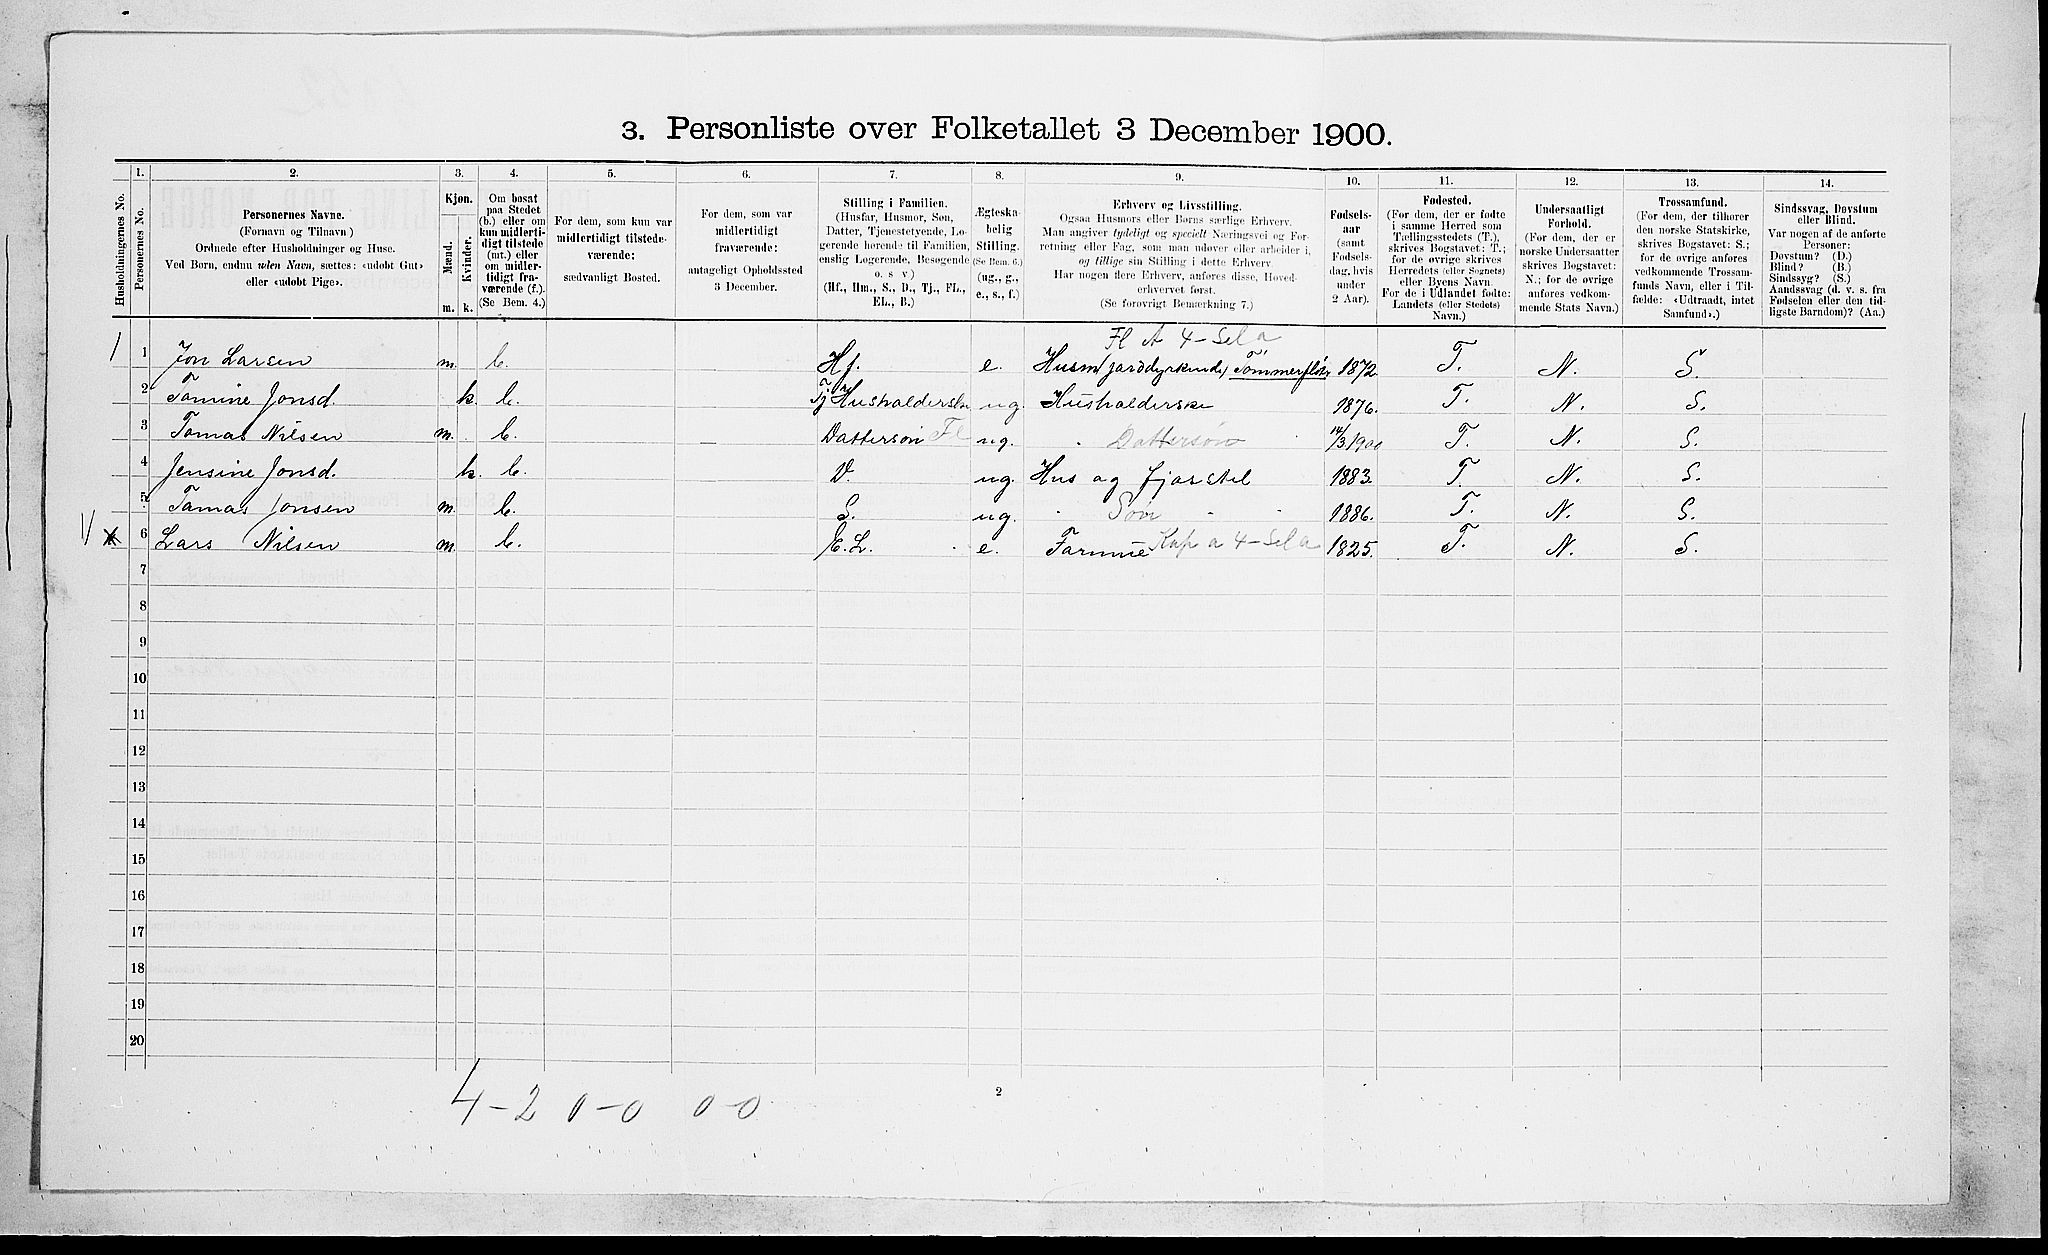 3. Personliste over Folketallet 3 December 1900.
Husholdningernes No.
1. Personernes No.
2. Personernes Navne.
(Fornavn og Tilnavn)
Ordnede efter Husholdninger og Huse.
Ved Børn, endnu uden Navn, sættes: «udøbt Gut»
eller «udøbt Pige».
3. Kjøn.
Mænd. Kvinder.
m. k.
4. Om bosat
paa Stedet
(b.) eller om
kun midlerti-
digt tilstede
(mt.) eller
om midler-
tidigt fra-
værende (f.).
(Se Bem. 4.)
5. For dem, som kun var
midlertidigt tilstede-
værende:
sædvanligt Bosted.
6. For dem, som var
midlertidigt
fraværende:
antageligt Opholdssted
3 December.
7. Stilling i Familien.
(Husfar, Husmor, Søn,
Datter, Tjenestetyende, Lo-
gerende hørende til Familien,
enslig Logerende, Besøgende
o. s. v.)
(Hf., Hm., S., D., Tj., FL.,
EL., B.)
8. Ægteska-
belig
Stilling.
(Se Bem. 6.)
(ug., g.,
e., s., f.)
9. Erhverv og Livsstilling.
Ogsaa Husmors eller Børns særlige Erhverv.
Man angiver tydeligt og specielt Næringsvei og For-
retning eller Fag, som man udøver eller arbeider i,
og tillige sin Stilling i dette Erhverv.
Har nogen flere Erhverv, anføres disse, Hoved-
erhvervet først.
(Se forøvrigt Bemærkning 7.)
10. Fødsels-
aar
(samt
Fødsels-
dag, hvis
under
2 Aar).
11. Fødested.
(For dem, der er fødte
i samme Herred som
Tællingsstedets (T.),
skrives Bogstavet: T.;
for de øvrige skrives
Herredets (eller Sognets)
eller Byens Navn.
For de i Udlandet fødte:
Landets (eller Stedets)
Navn.)
12. Undersaatligt
Forhold.
(For dem, der er
norske Undersaatter
skrives Bogstavet:
N.; for de øvrige
anføres vedkom-
mende Stats Navn.)
13. Trossamfund.
(For dem, der tilhører
den norske Statskirke,
skrives Bogstavet: S.;
for de øvrige anføres
vedkommende Trossam-
funds Navn, eller i Til-
fælde: «Udtraadt, intet
Samfund».)
14. Sindssvag, Døvstum
eller Blind.
Var nogen af de anførte
Personer:
Døvstum? (D.)
Blind? (B.)
Sindssyg? (S.)
Aandssvag (d. v. s. fra
Fødselen eller den tid-
ligste Barndom)? (Aa.)
Fl A 4 – Sel a
1 1 Jon Larsen m. b. Hf. e. Husm (jorddyrkende) 1872 T. N. S.
2 Tomine Jonsd. k. b. Tj Husholderske ug. Husholderske 1876. T. N. S.
3 Tomas Nilsen m. b. – Dattersøn Fl ug. Dattersøn 14/3 1900 T. N. S.
4 Jensine Jonsd. k. b. D. ug. Hus og fjøsstel 1883. T. N. S.
5 Tomas Jonsen m. b. S. ug. Søn 1886. T. N. S.
6 Lars Nilsen m. b. E.L. e. Kap a 4 – Sel a 1825. T. N. S.
7
8
9
10
11
12
13
14
15
16
17
18
19
20
4 – 2 0 – 0 0 – 0
2